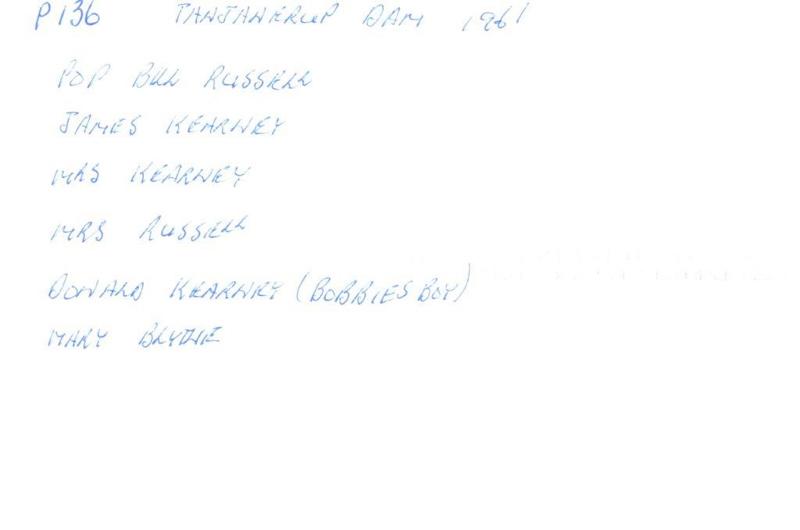 P136 TANJANERUP DAM 1961
POP BILL RUSSELL
JAMES KEARNEY
MRS KEARNEY
MRS RUSSELL
DONALD KEARNEY (BOBBIES BOY)
MARY BLYTHE